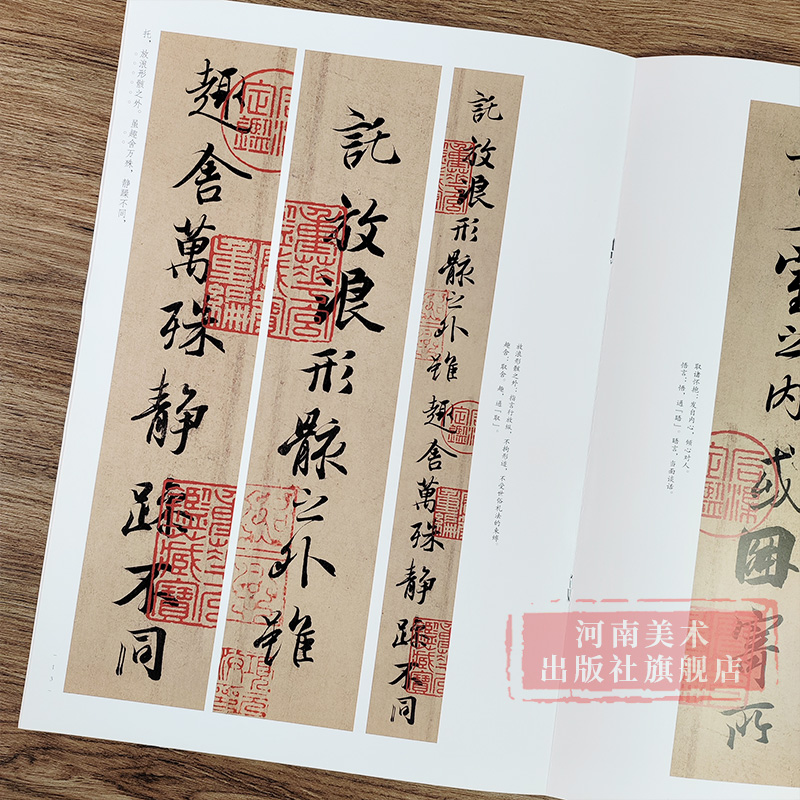 室之内或因寄所
取诸怀抱：发自内心，倾心对人。
悟言：悟，通「晤」。晤言，当面谈话。
放浪形骸之外：指言行放纵，不拘形迹，不受世俗礼法的束缚。
趣舍：取舍。趣，通「取」。
託放浪形骸之外雖趣舍萬殊静躁不同
託放浪形骸之外雖
趣舍萬殊静躁不同
托，放浪形骸之外。虽趣舍万殊，静躁不同，
13
河南美术
出版社旗舰店